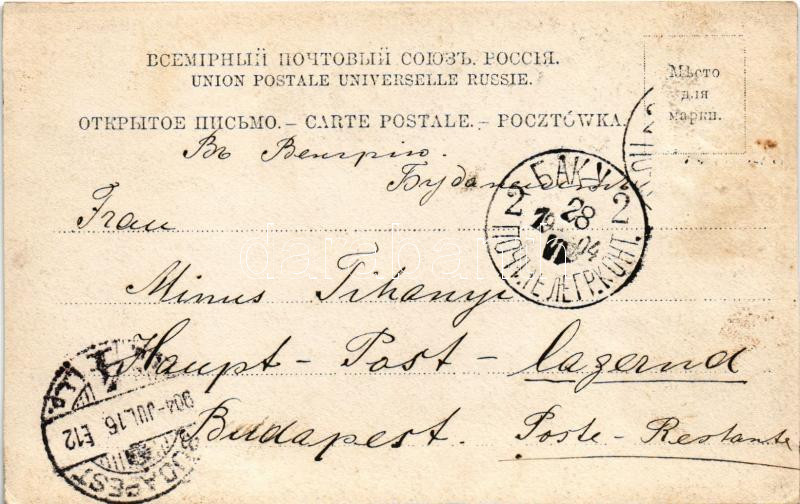 ВСЕМІРНЫЙ ПОЧТОВЫЙ СОЮЗЪ. РОССІЯ.
UNION POSTALE UNIVERSELLE RUSSIE.
Мѣсто
для
марки.
ОТКРЫТОЕ ПИСЬМО. – CARTE POSTALE. – POCZTÓWKA.
Въ Венгрію.
Будапештъ
БАКУ
2 28 2
19 VI 04
ПОЧТ.ТЕЛЕГР.КОНТ.
Frau
Minus Tihanyi
Haupt - Post - lagernd
Budapest. Poste - Restante
904 JUL.16 E12
BUDAPEST